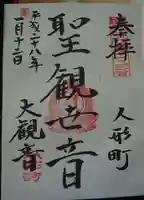 奉拝
人形町
聖観世音
大観音
平成二十八年
一月十二日